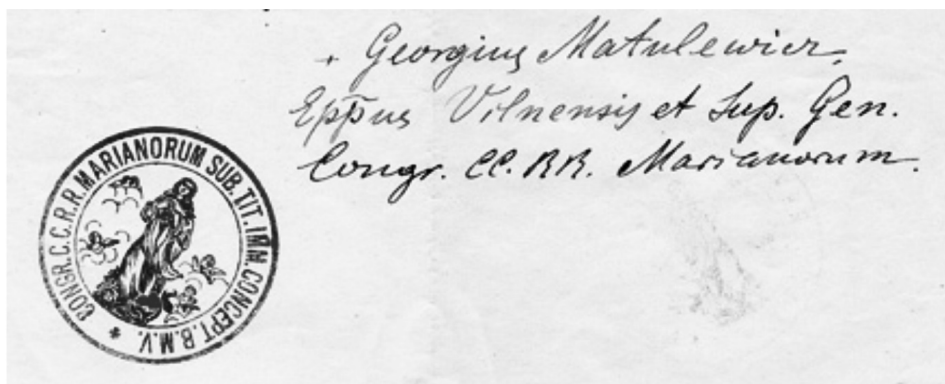 + Georgius Matulewicz,
Eppus Vilnensis et Sup. Gen.
Congr. CC. RR. Marianorum.
CONGR. C. C. R. R. MARIANORUM SUB. TIT. IMM. CONCEPT. B. M. V.